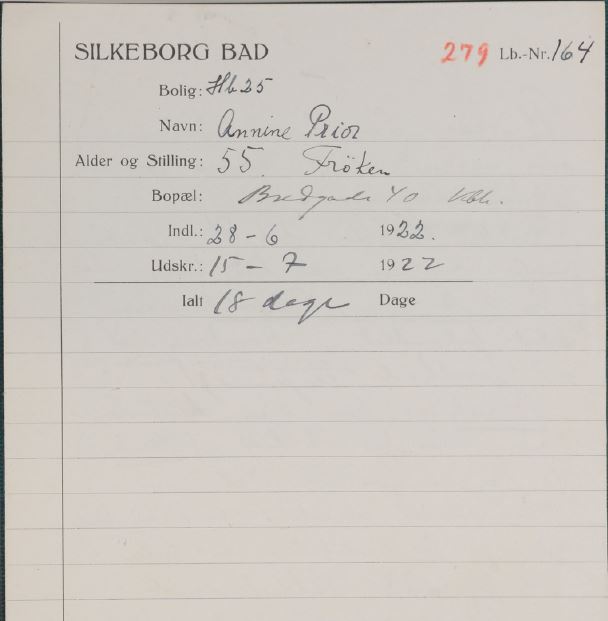 SILKEBORG BAD 279 Lb.-Nr. 164
Bolig: Hb 25
Navn: Annine Prior
Alder og Stilling: 55 Fröken
Bopæl: Bredgade 40 Kbh.
Indl.: 28-6 1922.
Udskr.: 15-7 1922
Ialt 18 dage Dage